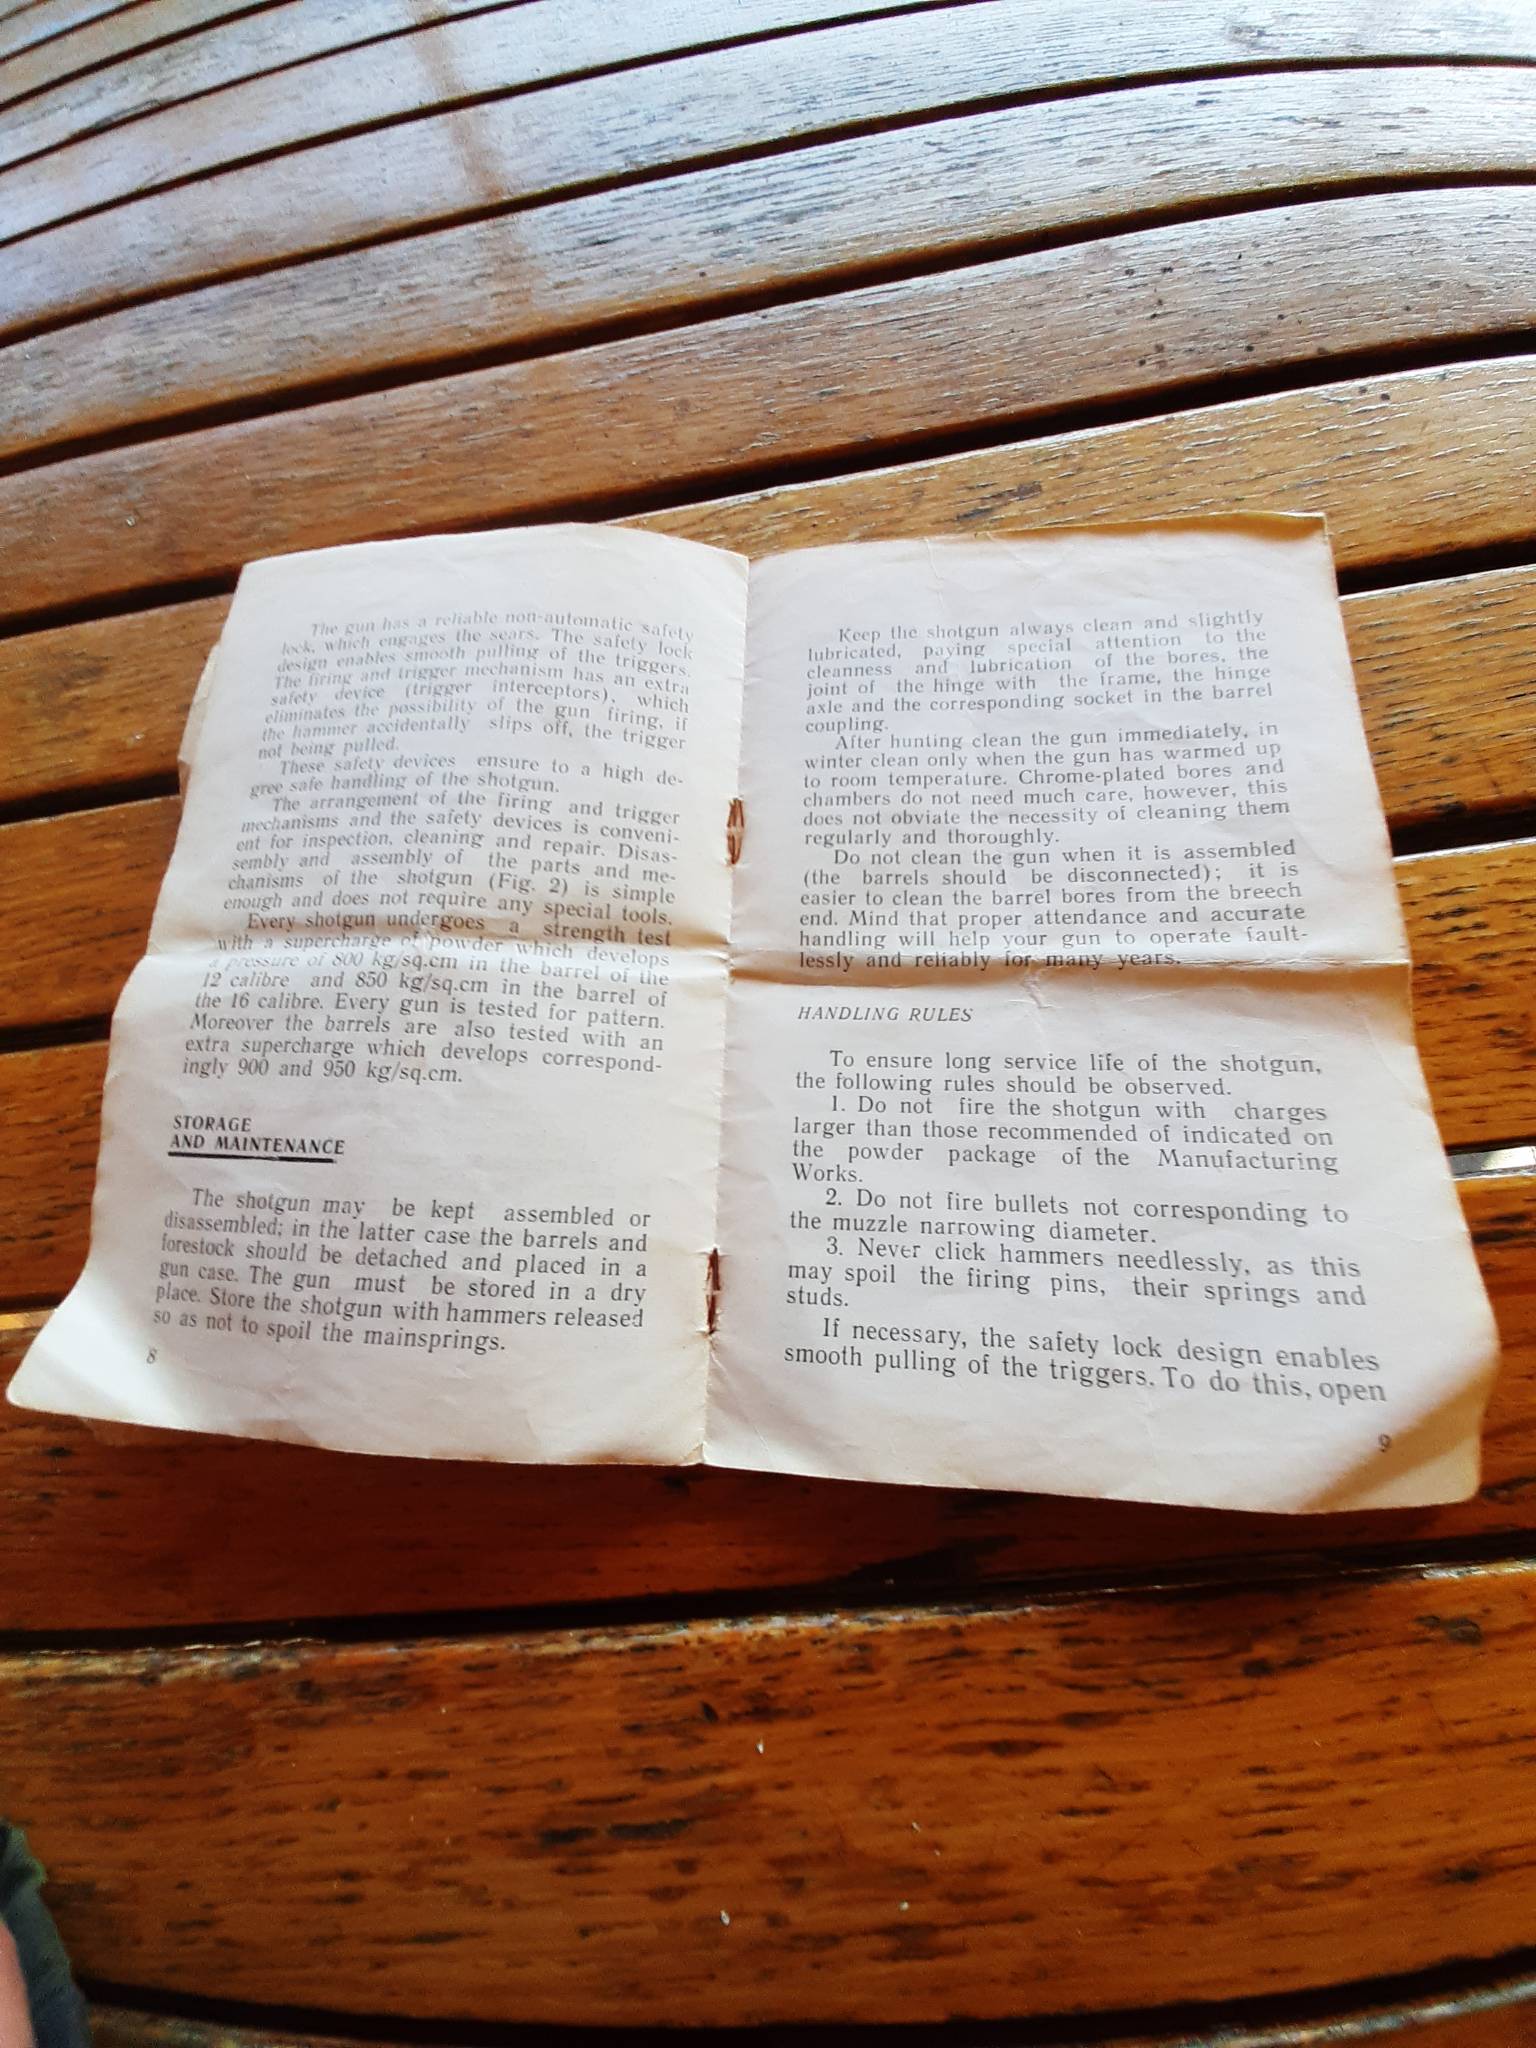 The gun has a reliable non-automatic safety
lock, which engages the sears. The safety lock
design enables smooth pulling of the triggers.
The firing and trigger mechanism has an extra
safety device (trigger interceptors), which
eliminates the possibility of the gun firing, if
the hammer accidentally slips off, the trigger
not being pulled.
These safety devices ensure to a high de-
gree safe handling of the shotgun.
The arrangement of the firing and trigger
mechanisms and the safety devices is conveni-
ent for inspection, cleaning and repair. Disas-
sembly and assembly of the parts and me-
chanisms of the shotgun (Fig. 2) is simple
enough and does not require any special tools.
Every shotgun undergoes a strength test
with a supercharge of powder which develops
a pressure of 800 kg/sq.cm in the barrel of the
12 calibre and 850 kg/sq.cm in the barrel of
the 16 calibre. Every gun is tested for pattern.
Moreover the barrels are also tested with an
extra supercharge which develops correspond-
ingly 900 and 950 kg/sq.cm.
STORAGE
AND MAINTENANCE
The shotgun may be kept assembled or
disassembled; in the latter case the barrels and
forestock should be detached and placed in a
gun case. The gun must be stored in a dry
place. Store the shotgun with hammers released
so as not to spoil the mainsprings.
8
Keep the shotgun always clean and slightly
lubricated, paying special attention to the
cleanness and lubrication of the bores, the
joint of the hinge with the frame, the hinge
axle and the corresponding socket in the barrel
coupling.
After hunting clean the gun immediately, in
winter clean only when the gun has warmed up
to room temperature. Chrome-plated bores and
chambers do not need much care, however, this
does not obviate the necessity of cleaning them
regularly and thoroughly.
Do not clean the gun when it is assembled
(the barrels should be disconnected); it is
easier to clean the barrel bores from the breech
end. Mind that proper attendance and accurate
handling will help your gun to operate fault-
lessly and reliably for many years.
HANDLING RULES
To ensure long service life of the shotgun,
the following rules should be observed.
1. Do not fire the shotgun with charges
larger than those recommended of indicated on
the powder package of the Manufacturing
Works.
2. Do not fire bullets not corresponding to
the muzzle narrowing diameter.
3. Never click hammers needlessly, as this
may spoil the firing pins, their springs and
studs.
If necessary, the safety lock design enables
smooth pulling of the triggers. To do this, open
9